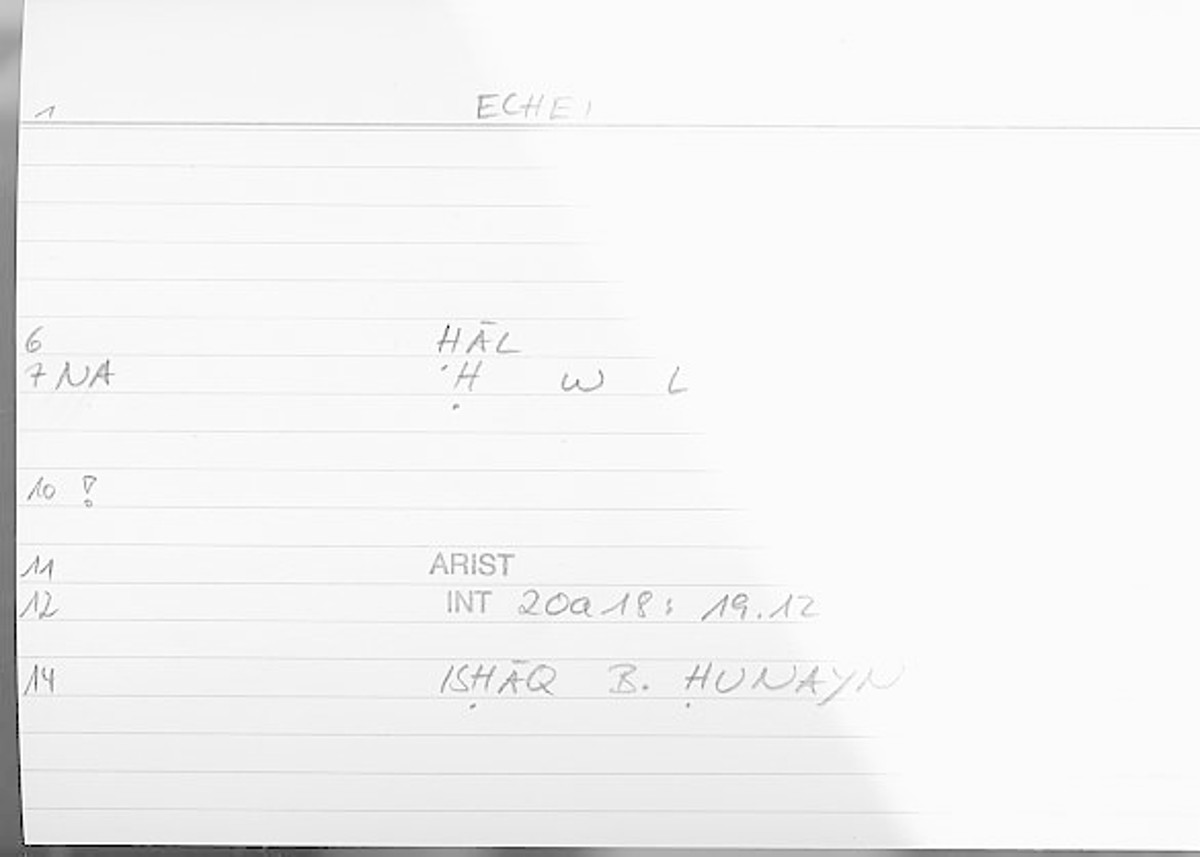 1 ECHEI
6 HĀL
7 NA Ḥ W L
10 !
11 ARIST
12 INT 20a18; 19.12
14 ISḤĀQ B. ḤUNAYN